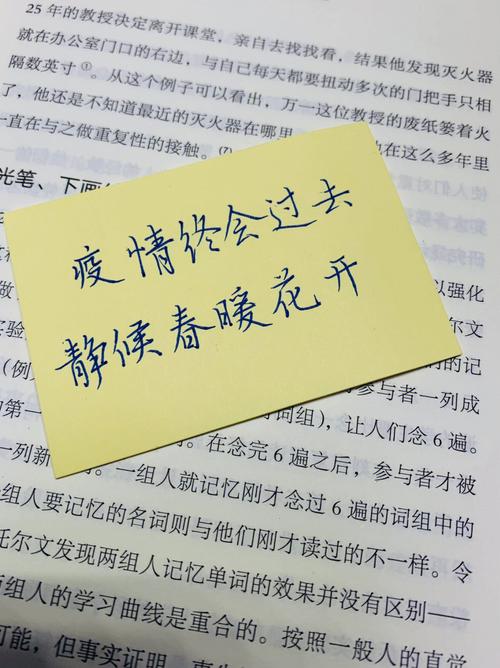 25 年的教授决定离开课堂，亲自去找找看，结果他发现灭火器
就在办公室门口的右边，与自己每天都要扭动多次的门把手只相
隔数英寸①。从这个例子可以看出，万一这位教授的废纸篓着火
了，他还是不知道最近的灭火器在哪里
在这么多年里
一直在与之做重复性的接触。⑺
光笔、下画
疫情终会过去
静候春暖花开
以强化
做
尔文
实验
的记
（例
参与者一列成
的第一
词组），让人们念 6 遍。
一列新
。在念完 6 遍之后，参与者才被
一组人就记忆刚才念过 6 遍的词组中的
组人要记忆的名词则与他们刚才读过的不一样。令
托尔文发现两组人记忆单词的效果并没有区别——
两组人的学习曲线是重合的。按照一般人的直觉
可能，但事实证明，